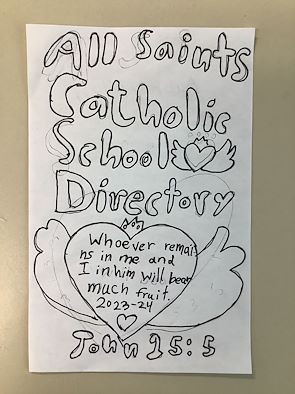 All Saints
Catholic
School
Directory
Whoever remai
ns in me and
I in him will bear
much fruit.
2023-24
John 15:5